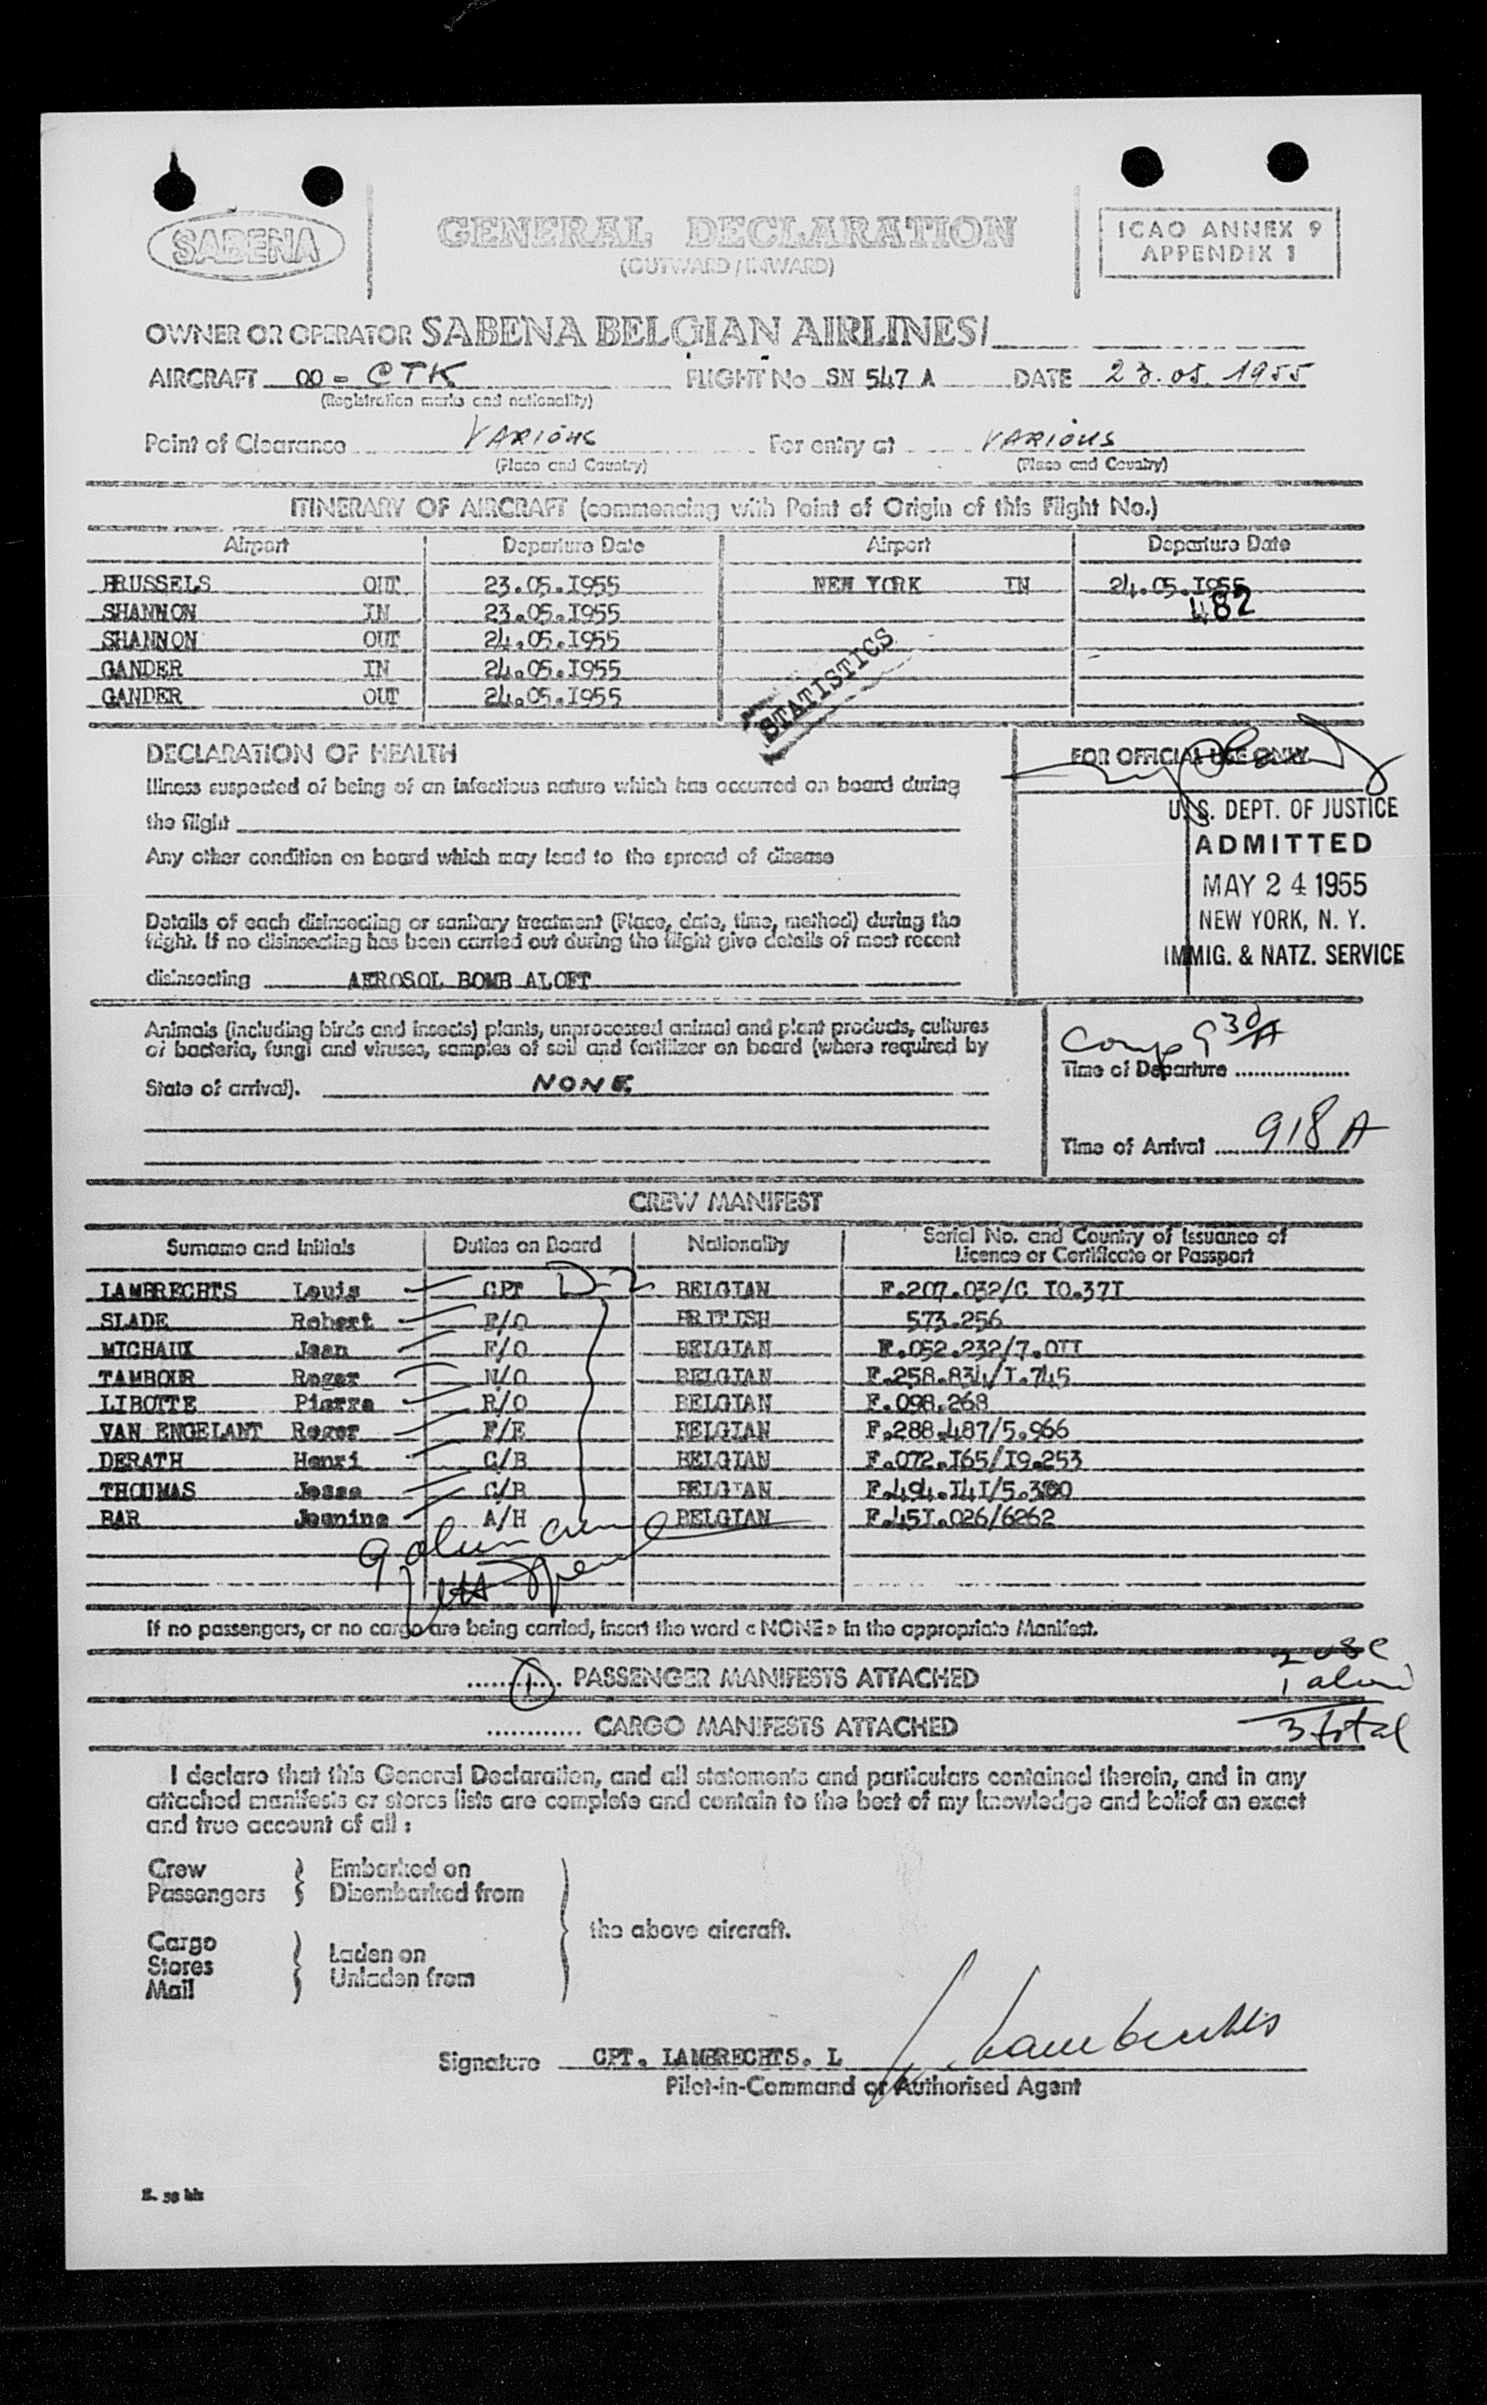 SABENA
GENERAL DECLARATION
(OUTWARD / INWARD)
ICAO ANNEX 9
APPENDIX 1
OWNER OR OPERATOR SABENA BELGIAN AIRLINES/
AIRCRAFT OO - CTK FLIGHT No SN 547 A DATE 23.05.1955
(Registration marks and nationality)
Point of Clearance VARIOUS For entry at VARIOUS
(Place and Country) (Place and Country)
ITINERARY OF AIRCRAFT (commencing with Point of Origin of this Flight No.)
Airport Departure Date Airport Departure Date
BRUSSELS OUT 23.05.I955 NEW YORK IN 24.05.I955
SHANNON IN 23.05.I955 482
SHANNON OUT 24.05.I955
GANDER IN 24.05.I955
GANDER OUT 24.05.I955
STATISTICS
DECLARATION OF HEALTH
FOR OFFICIAL USE ONLY
Illness suspected of being of an infectious nature which has occurred on board during
the flight
Any other condition on board which may lead to the spread of disease
Details of each disinsecting or sanitary treatment (Place, date, time, method) during the
flight. If no disinsecting has been carried out during the flight give details of most recent
disinsecting AEROSOL BOMB ALOFT
U.S. DEPT. OF JUSTICE
ADMITTED
MAY 24 1955
NEW YORK, N. Y.
IMMIG. & NATZ. SERVICE
Animals (including birds and insects) plants, unprocessed animal and plant products, cultures
of bacteria, fungi and viruses, samples of soil and fertilizer on board (where required by
State of arrival). NONE
Comp 930A
Time of Departure
Time of Arrival 918 A
CREW MANIFEST
Surname and Initials Duties on Board Nationality Serial No. and Country of Issuance of
Licence or Certificate or Passport
LAMBRECHTS Louis CPT D-2 BELGIAN F.207.032/C IO.37I
SLADE Robert F/O BRITISH 573.256
MICHAUX Jean F/O BELGIAN F.052.232/7.OII
TAMBOUR Roger N/O BELGIAN F.258.834/I.745
LIBOTTE Pierre R/O BELGIAN F.098.268
VAN ENGELANT Roger F/E BELGIAN F.288.487/5.966
DERATH Henri C/B BELGIAN F.072.I65/I9.253
THOUMAS Josse C/B BELGIAN F.494.I4I/5.380
BAR Jeanine A/H BELGIAN F.45I.026/6262
9 alien crew
If no passengers, or no cargo are being carried, insert the word « NONE » in the appropriate Manifest.
2 USC
1 PASSENGER MANIFESTS ATTACHED
1 alien
CARGO MANIFESTS ATTACHED
3 total
I declare that this General Declaration, and all statements and particulars contained therein, and in any
attached manifests or stores lists are complete and contain to the best of my knowledge and belief an exact
and true account of all :
Crew Embarked on
Passengers Disembarked from
the above aircraft.
Cargo Laden on
Stores
Unladen from
Mail
Signature CPT. LAMBRECHTS. L L. Lambrechts
Pilot-in-Command or Authorised Agent